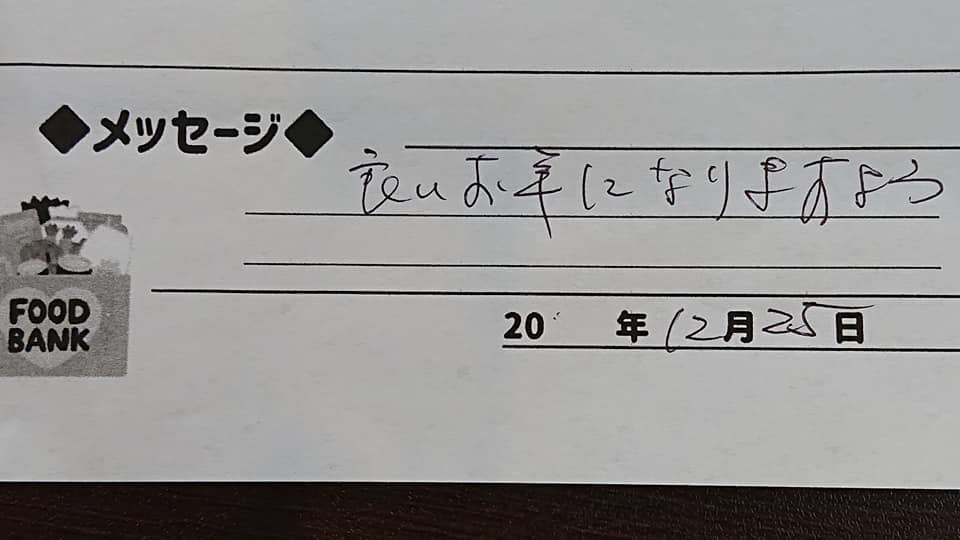 ◆メッセージ◆
良いお年になりますよう
FOOD
BANK
20 年12月25日